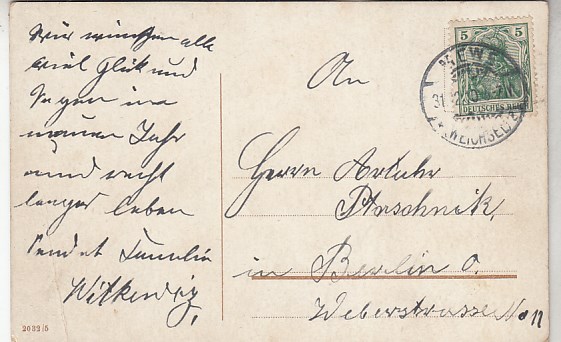 Wir wünschen alle
viel Glük und
Segen im
neuen Jahr
und recht
langes leben
sendet Familie
An
Herrn Arthur
in Berlin O.
Weberstrasse No 12
5
DEUTSCHES REICH
MEWE
31 12
WEICHSEL
2032/5